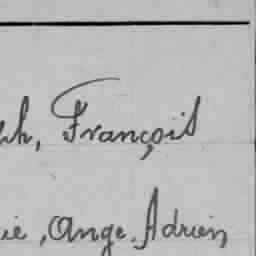 ph, François
ie, Ange, Adrien